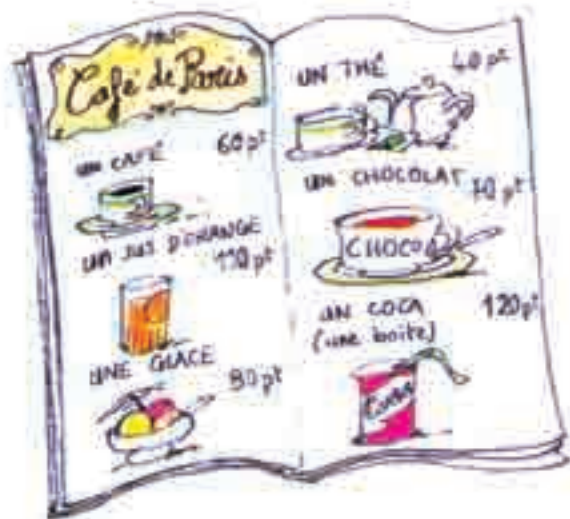 Café de Paris
UN CAFÉ 60 pt
UN JUS D'ORANGE
110 pt
UNE GLACE
80 pt
UN THÉ 40 pt
UN CHOCOLAT 70 pt
CHOCO
UN COCA 120 pt
(une boîte)